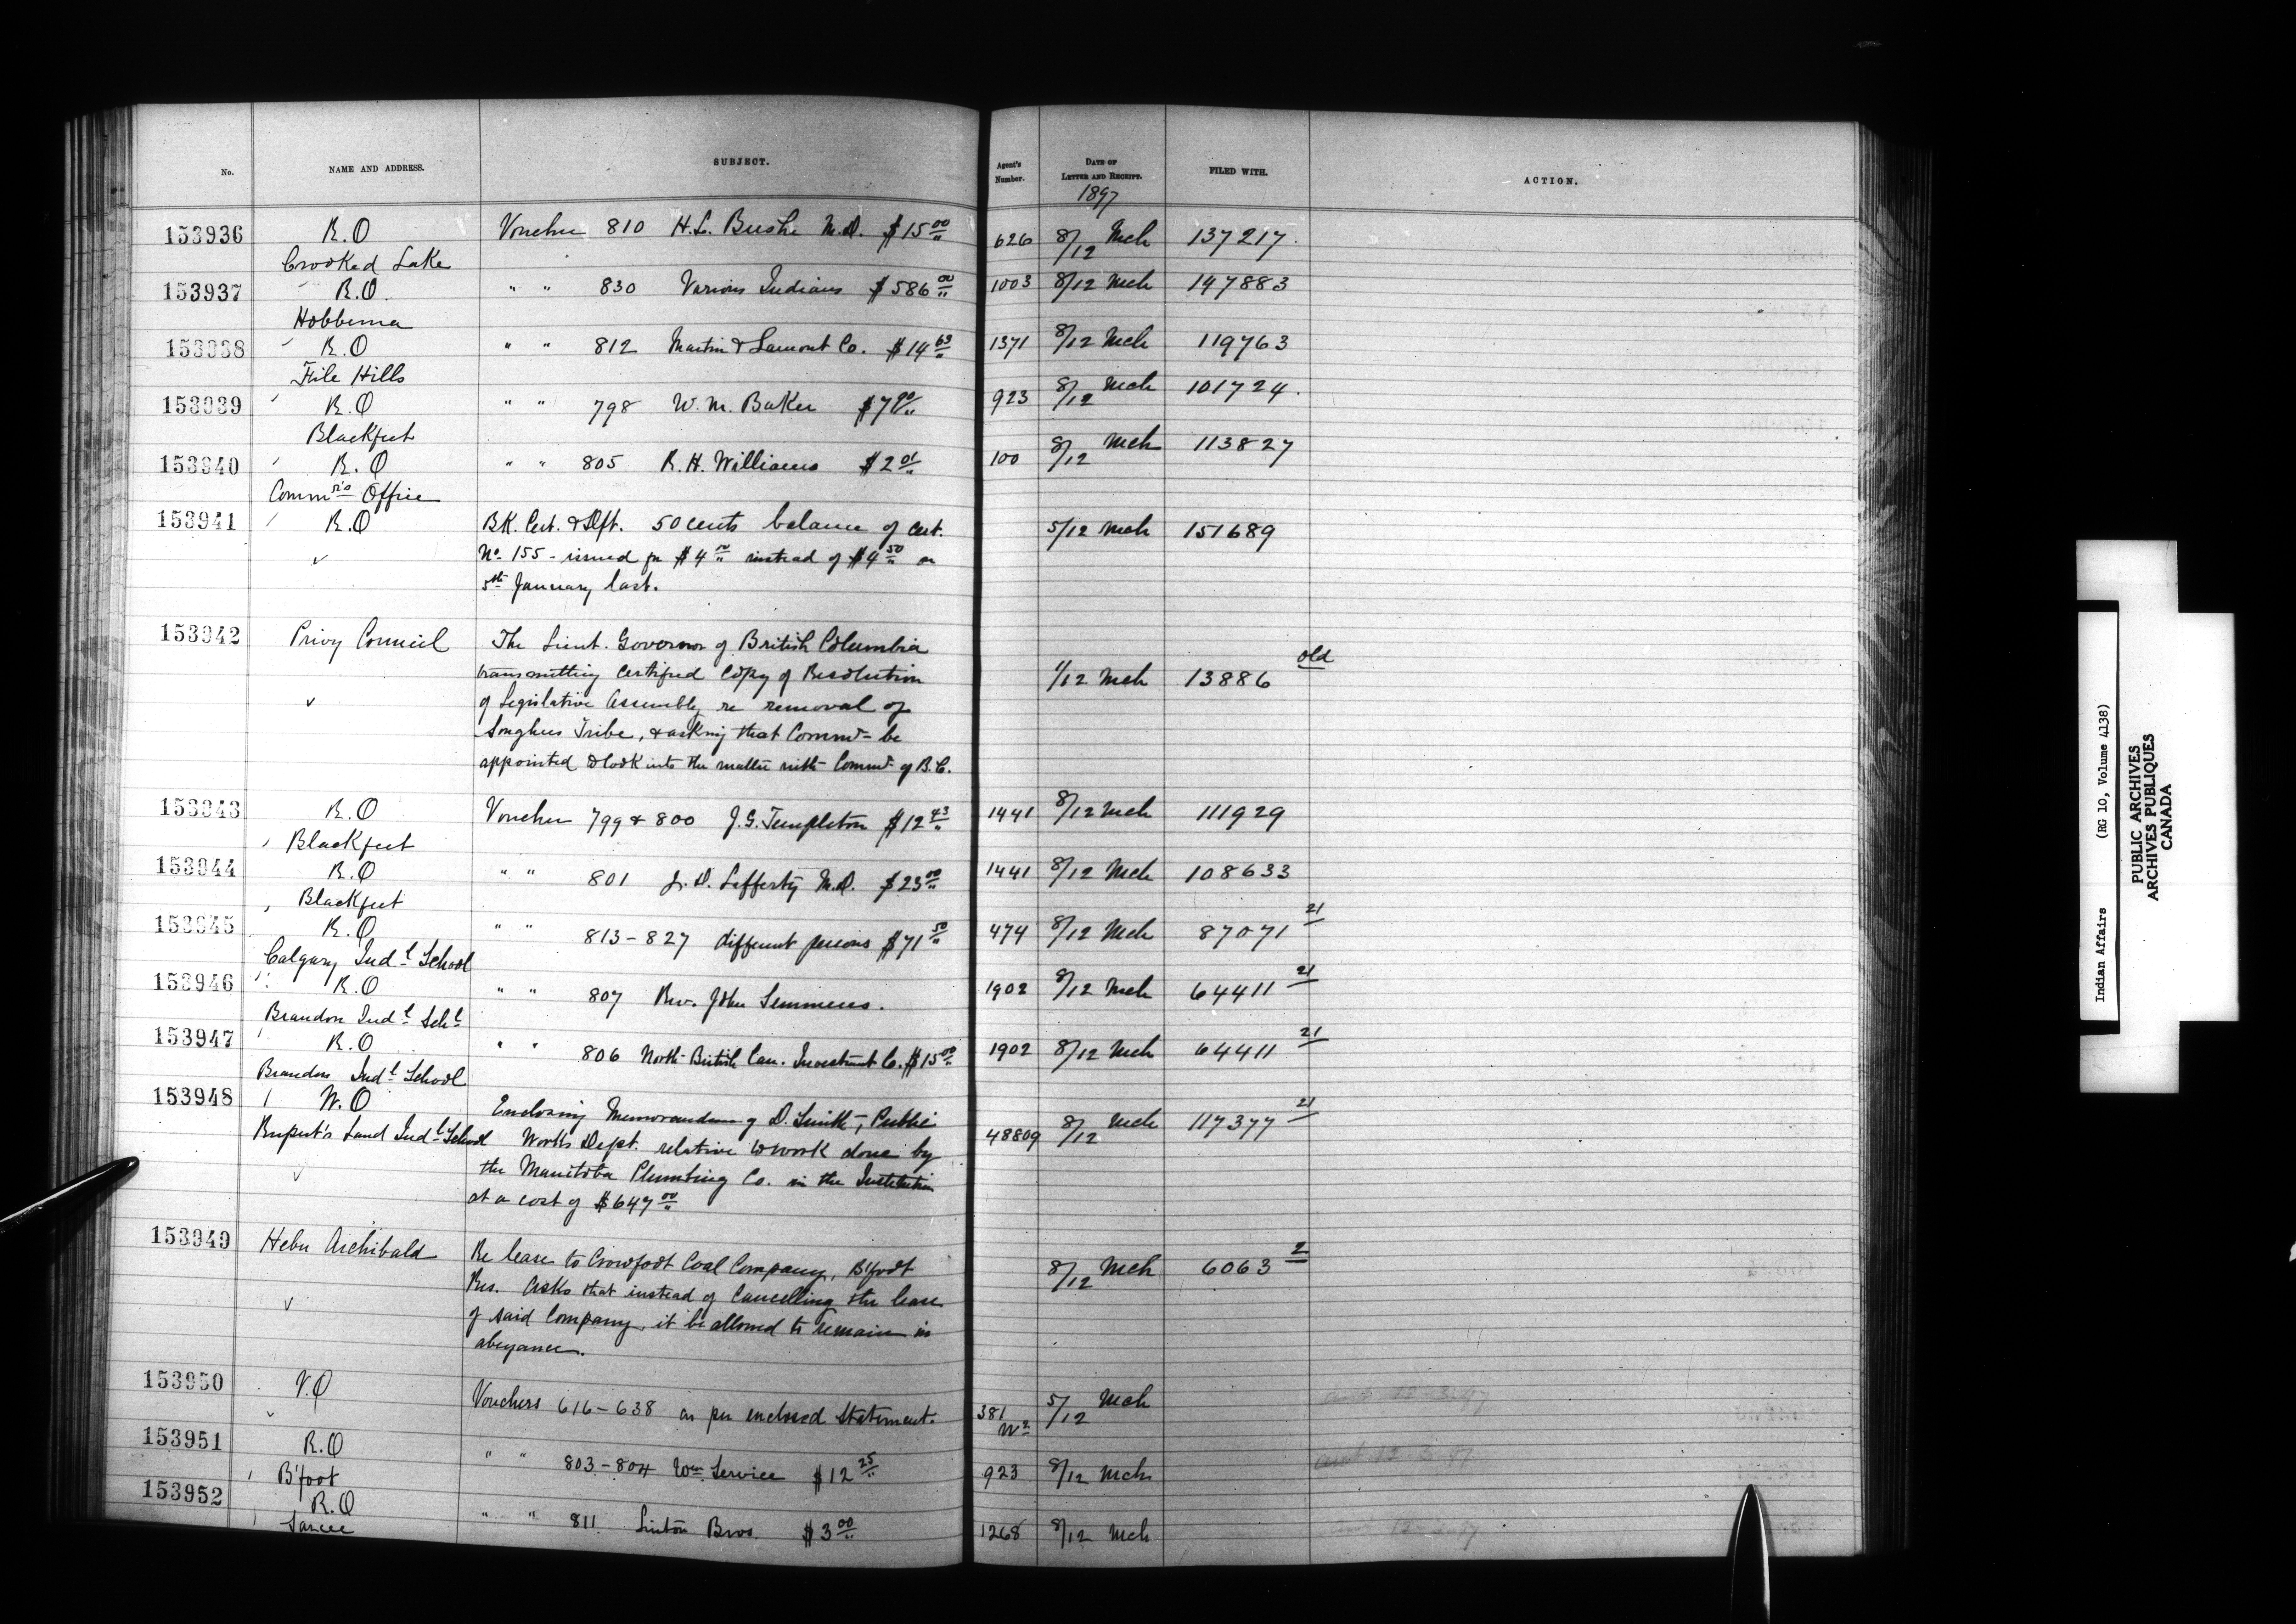 No.	NAME AND ADDRESS.	SUBJECT.	Agent's Number.	DATE OF LETTER AND RECEIPT.	FILED WITH.	ACTION.
1897
153936	R.O	Voucher 810 H.L. Bushe M.D. $15 00/"	626	8/12 Mch	137217.
Crooked Lake
153937	R.O.	" " 830 Various Indians $586 00/"	1003	8/12 Mch	147883
Hobbema
153938	R.O	" " 812 Martin & Lamont Co. $14 63/"	1371	8/12 Mch	119763
File Hills
153939	R.O	" " 798 W.M. Baker $7	923	8/12 Mch	101724.
Blackfeet
153940	R.O	" " 805 R.H. Williams $2 01/"	100	8/12 Mch	113827
Commrs Office
153941	R.O	BK. Cert. & Dft. 50 cents balance of Cert.	5/12 Mch	151689
No 155 - issued for $4 00/" instead of $4 50/" on
5th January last.
153942	Privy Council	The Lieut. Governor of British Columbia
transmitting certified copy of Resolution	1/12 Mch	13886 old
of Legislative Assembly re removal of
Songhees Tribe, & asking that Commr be
appointed to look into the matter with Commr of B.C.
153943	R.O	Voucher 799 & 800 J.G. Templeton $12 43/"	1441	8/12 Mch	111929
Blackfeet
153944	R.O	" " 801 J.D. Lafferty M.D. $23 00/"	1441	8/12 Mch	108633
Blackfeet
153945	R.O	" " 813-827 different persons $71 50/"	474	8/12 Mch	87071 21
Calgary Indl School
153946	R.O	" " 807 Rev. John Semmens.	1902	8/12 Mch	64411 21
Brandon Indl Schl
153947	R.O	" " 806 North British Can. Investment Co. $15 00/"	1902	8/12 Mch	64411 21
Brandon Indl School
153948	W.O	Enclosing Memorandum of D. Smith, Public
Rupert's Land Indl School	Works Dept. relative to work done by	48809	8/12 Mch	117377 21
the Manitoba Plumbing Co. in the Institution
at a cost of $647 00/"
153949	Heber Archibald	Re lease to Crowfoot Coal Company, B'foot	8/12 Mch	6063 2
Res. Asks that instead of cancelling the lease
of said Company, it be allowed to remain in
abeyance.
153950	V.O	Vouchers 616-638 as per enclosed statement.	381	5/12 Mch
153951	R.O	" " 803-804 Wm Service $12 25/"	923	8/12 Mch
B'foot
153952	R.O	" " 811 Linton Bros. $3 00/"	1268	8/12 Mch
Sarcee
Indian Affairs (RG 10, Volume 4138)
PUBLIC ARCHIVES
ARCHIVES PUBLIQUES
CANADA